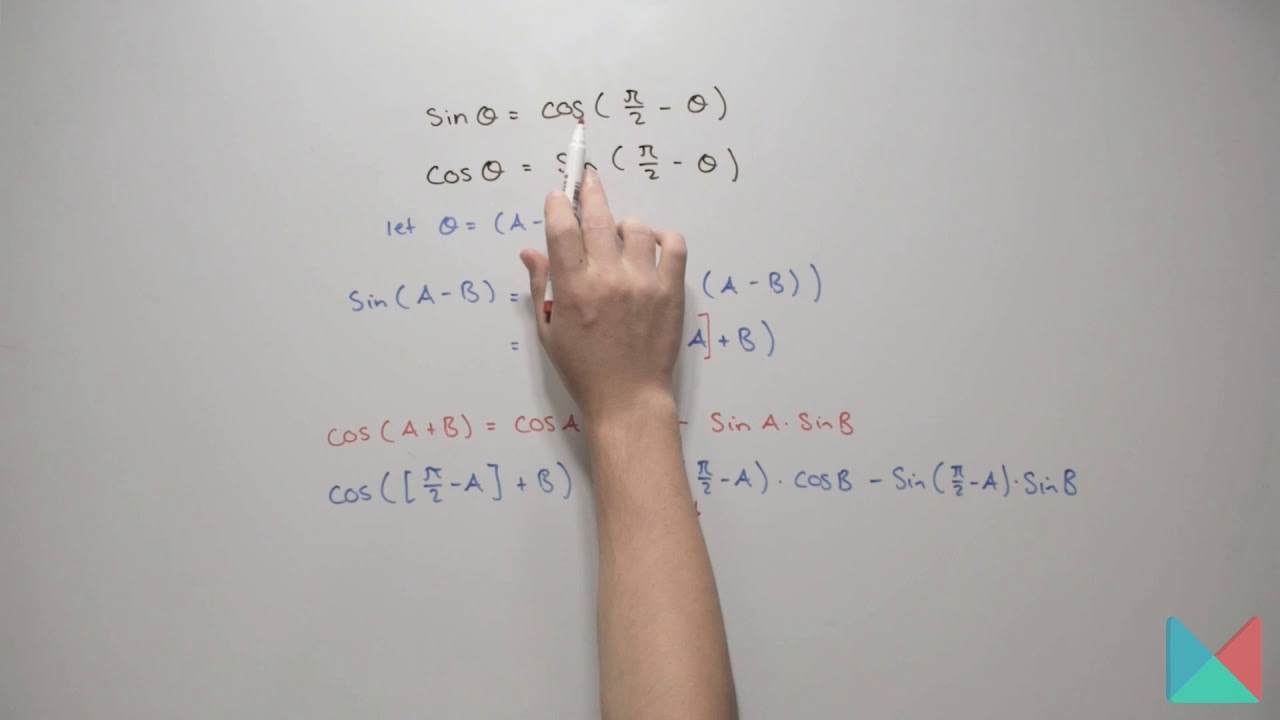 Sin θ = cos( π/2 − θ )
Cos θ = Sin ( π/2 − θ )
let θ = (A −
Sin ( A − B ) = (A − B))
= A] + B )
cos ( A + B ) = cos A − Sin A · Sin B
cos ( [ π/2 − A ] + B ) π/2 − A ) · cos B − Sin ( π/2 − A ) · Sin B